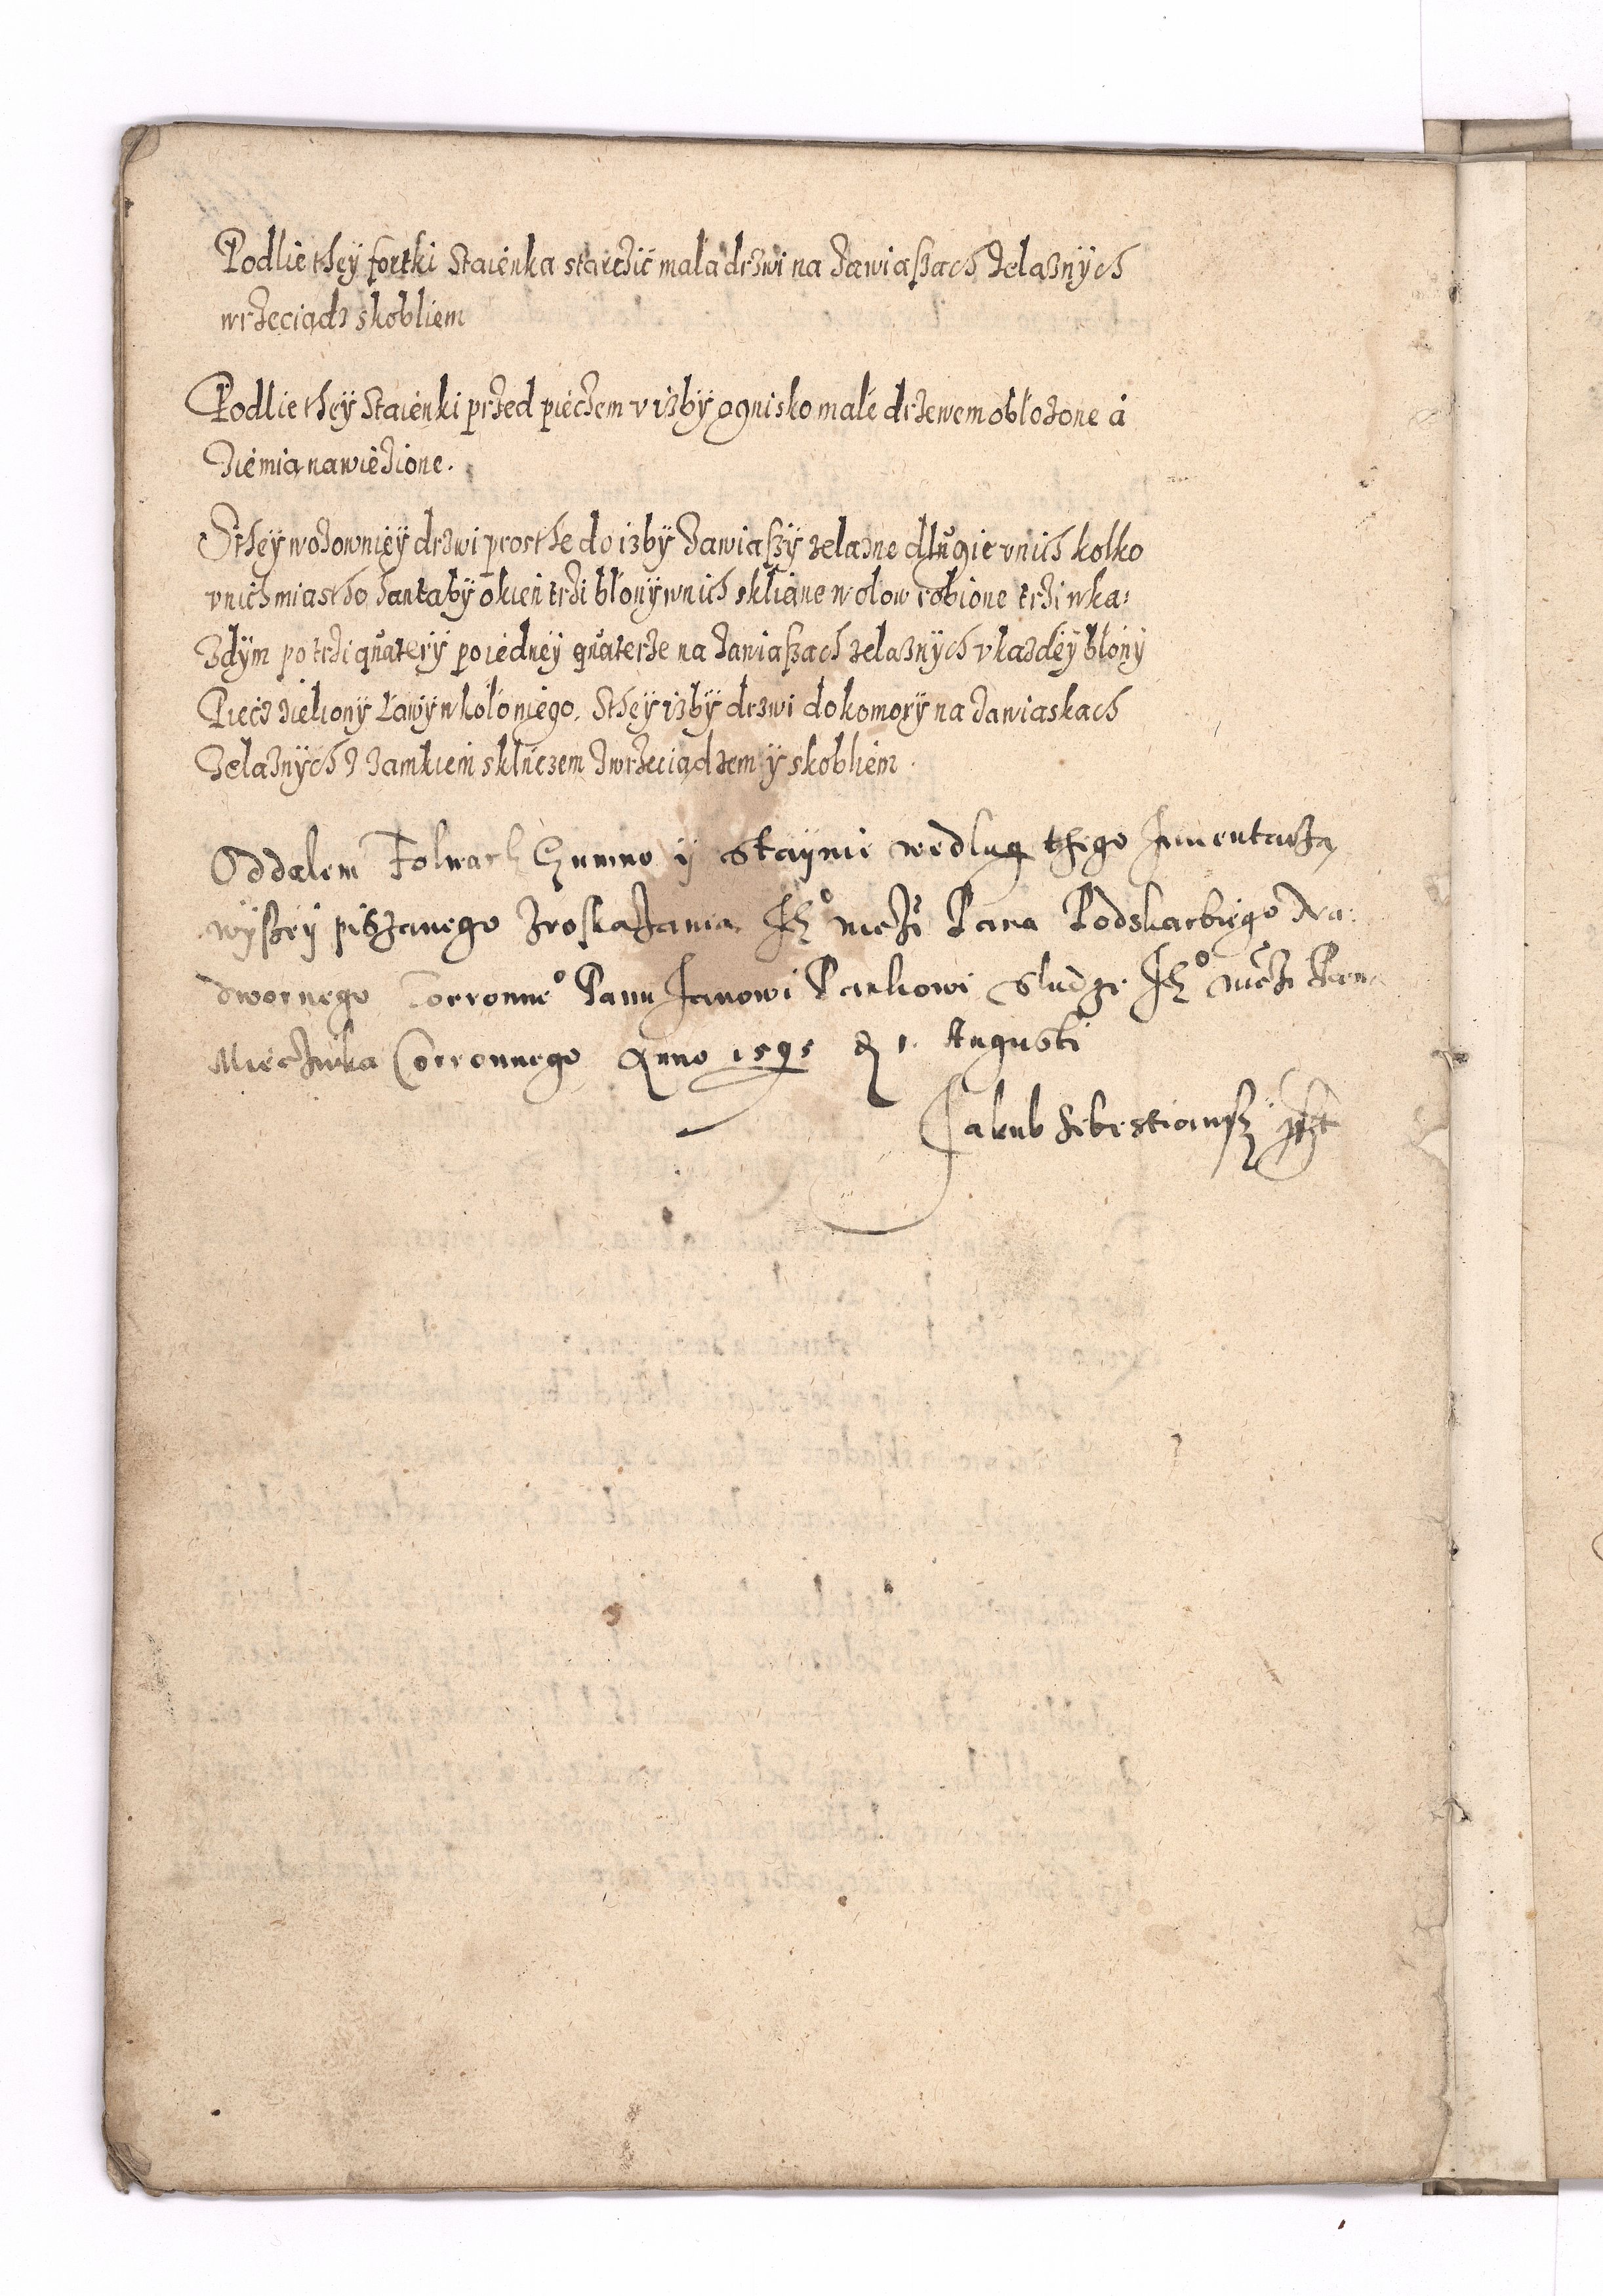 Podlie theÿ fortki Staienka starcżić mała drzwi na żawiaßach żelaznÿch
wrżeciądz skobliem
Podlie theÿ Staienki prżed piecżem v izbÿ ognisko małe drżewem obłożone á
żiemią nawieżione.
S theÿ wożowniëÿ drżwi prosthe do izbÿ żawiaßÿ zelażne długie v nich kolko
v nich miastho hantabÿ okien trżi błonÿ w nich skliane w ołow robione trżi w ka:
zdÿm po trżi quaterÿ po iedneÿ quaterże na żawiaßach zelaznÿch v każdeÿ błonÿ
Piecz żielionÿ Ławÿ w koło niego. S theÿ izbÿ drzwi do komorÿ na żawiaskach
zelaznÿch z zamkiem skluczem żwrżeciądzem ÿ skobliem.
Oddalem Folwark Gumno ÿ Staÿnie wedlug thego Inuentarża
wÿßeÿ piszanego zroskażania Jego mczi Pana Podskarbiego Na:
dwornego Corronne° Panu Janowi Parkowi Sludze Je° mczi Pana
Miecżnika Corronnego Anno 1595 D 1. Augusti
Jakub Sebestianß